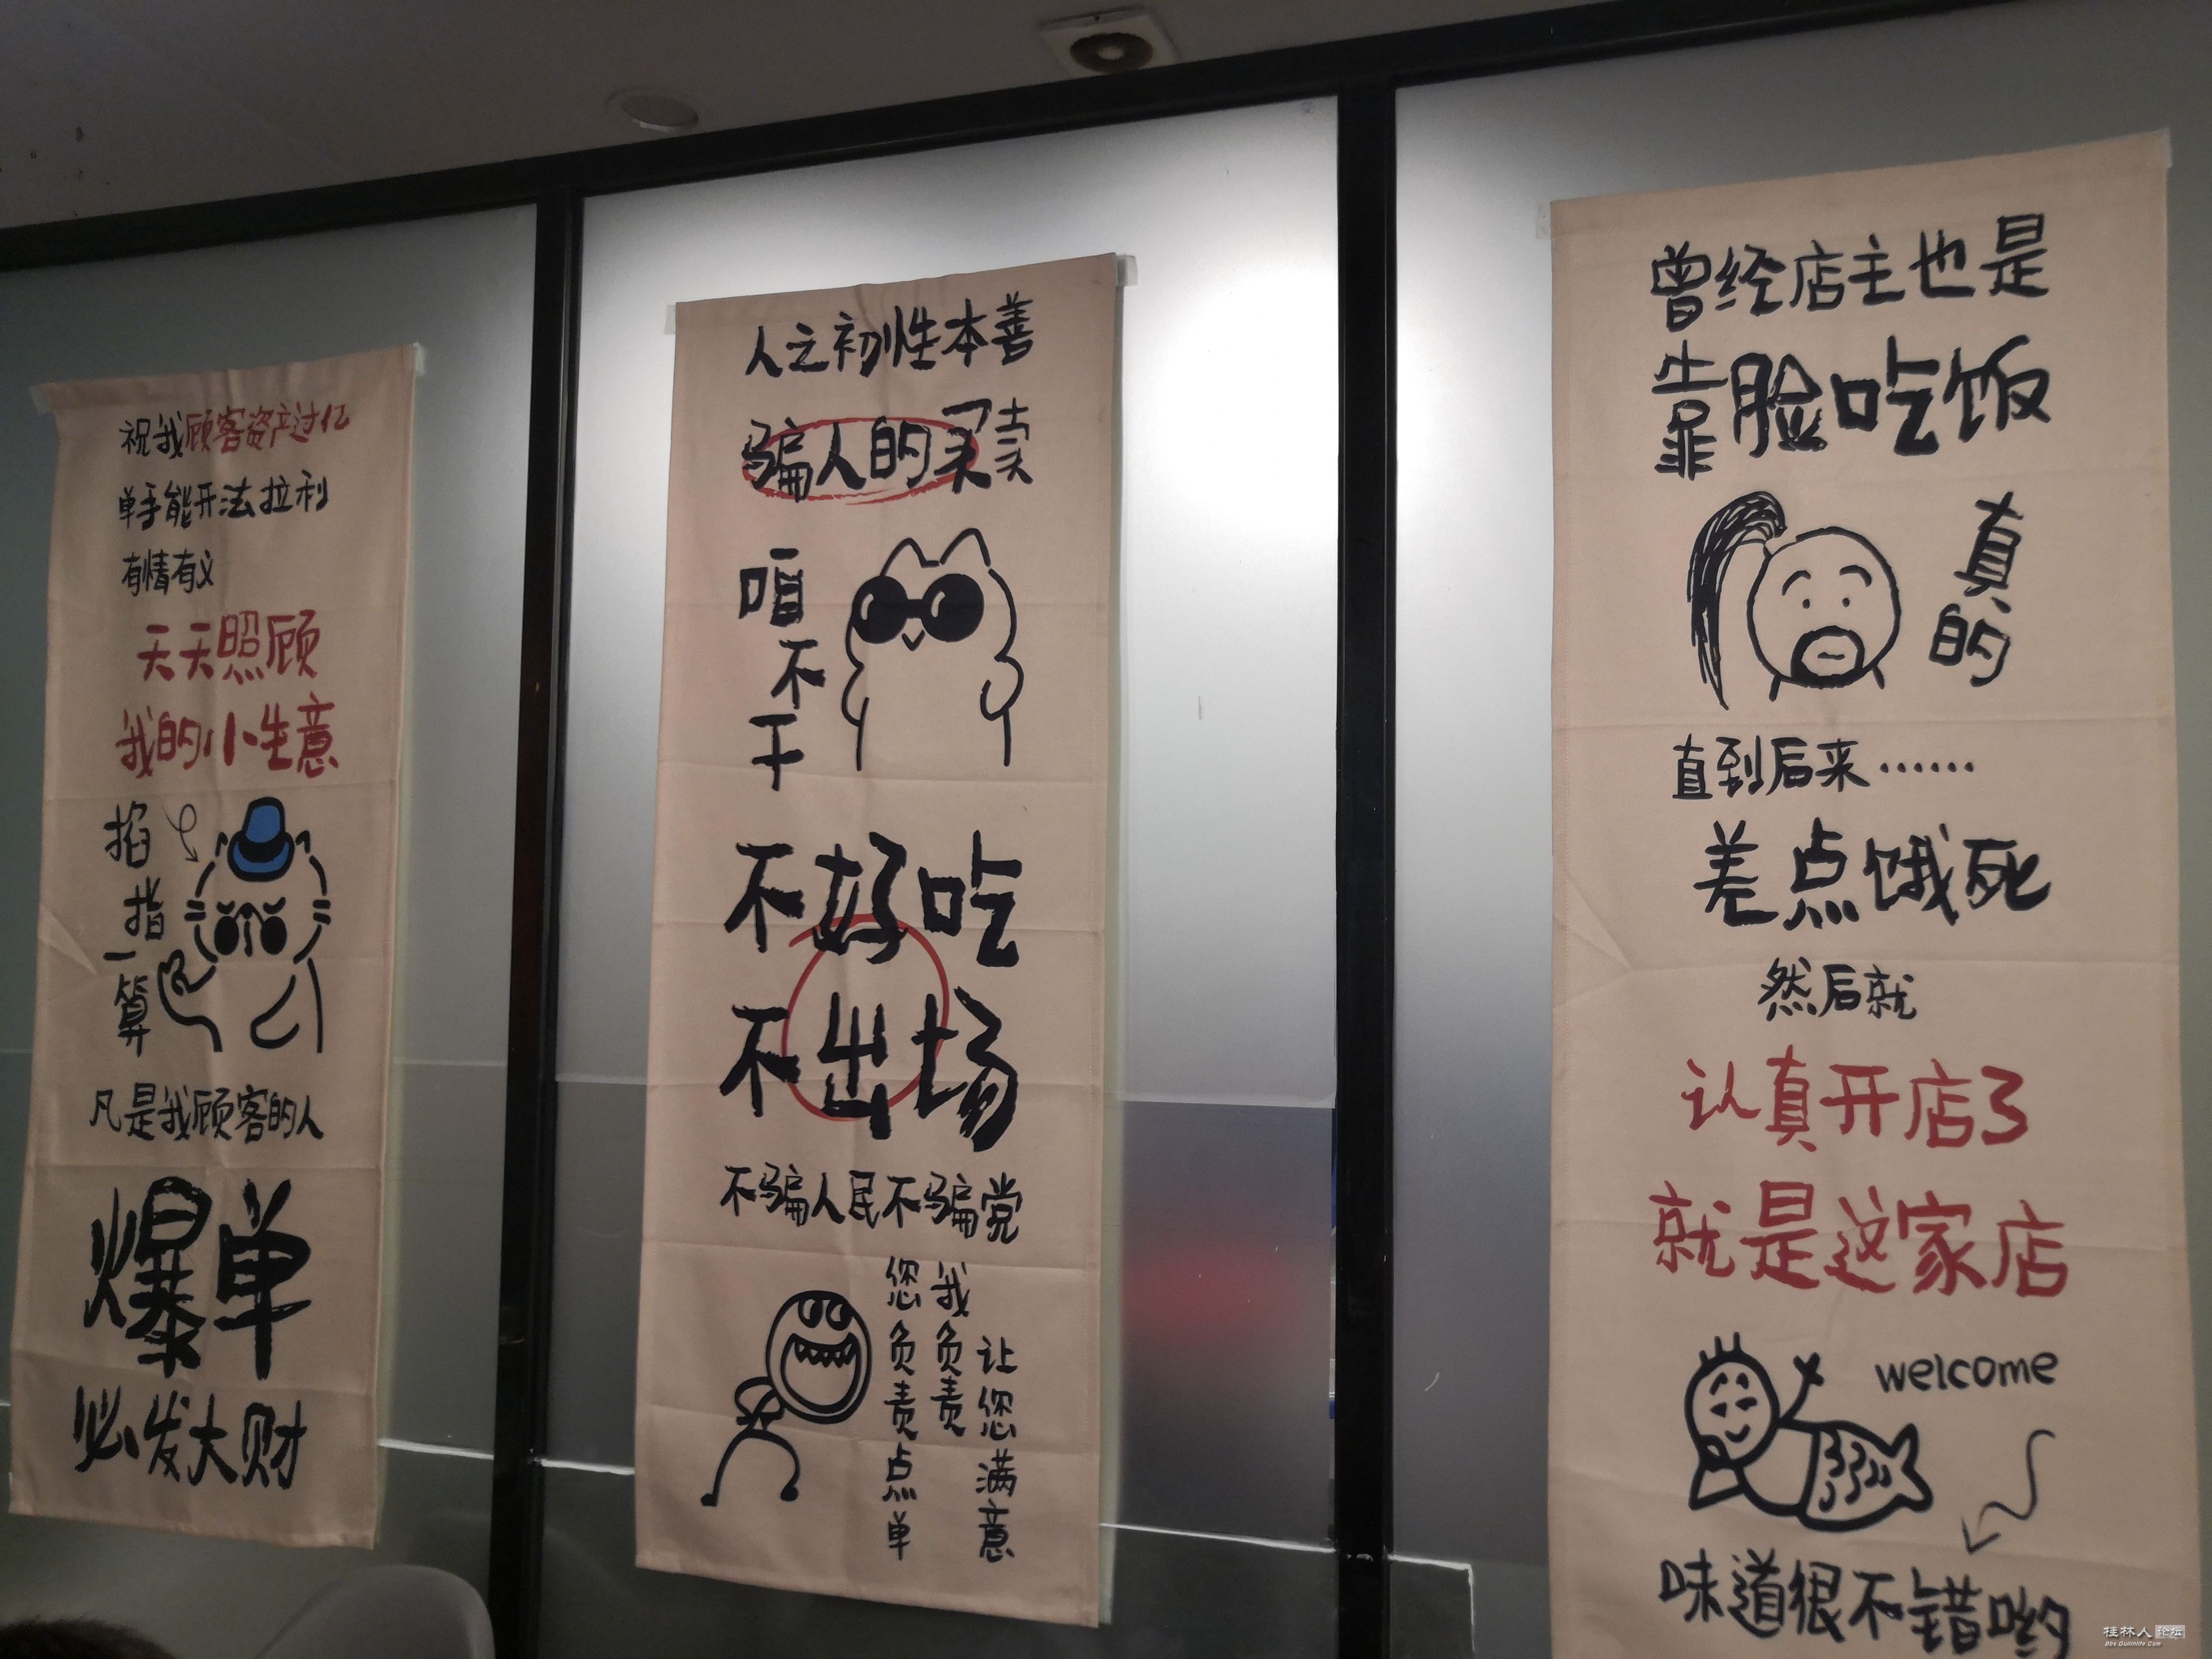 祝我顾客资产过亿
单手能开法拉利
有情有义
天天照顾
我的小生意
掐指一算
凡是我顾客的人
爆单
必发大财
人之初性本善
骗人的买卖
咱不干
不好吃
不出场
不骗人民不骗党
您负责点单
我负责
让您满意
曾经店主也是
靠脸吃饭
真的
直到后来……
差点饿死
然后就
认真开店了
就是这家店
welcome
味道很不错哟
桂林人论坛
Bbs.Guilinlife.Com